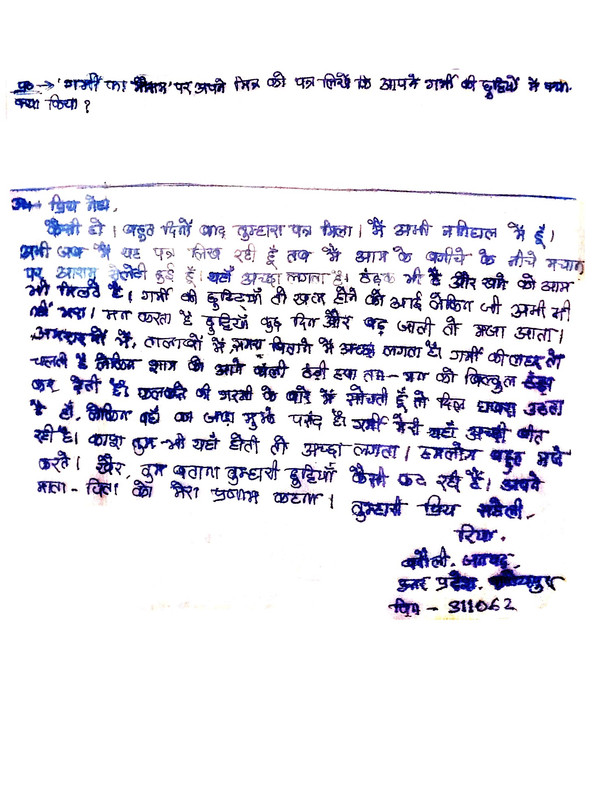 प्र० → 'गर्मी का मौसम' पर अपने मित्र को पत्र लिखें कि आपने गर्मी की छुट्टियों में क्या-
क्या किया ?
उत्त→ प्रिय नेहा,
कैसी हो । बहुत दिनों बाद तुम्हारा पत्र मिला। मैं अभी ननिहाल में हूँ।
अभी जब मैं यह पत्र लिख रही हूँ तब मैं आम के बगीचे के नीचे मचान
पर आराम से लेटी हुई हूँ। यहाँ अच्छा लगता है। ठंढक भी है और खाने को आम
भी मिलते है। गर्मी की छुट्टियाँ तो खत्म होने को आई लेकिन जी अभी भी
नहीं भरा। मन करता है छुट्टियाँ कुछ दिन और बढ़ जाती तो मजा आता।
में, तालाबों में समय बिताने में अच्छा लगता है। गर्मी की लहर तो
चलती है लेकिन शाम को आने वाली ठंडी हवा तन-मन को बिल्कुल ठंढा
कर देती है। कलकत्ते की गरमी के बारे में सोचती हूँ तो दिल घबरा उठता
है हाँ, लेकिन वहाँ का जाड़ा मुझे पसंद है। गर्मी मेरी यहाँ अच्छी बीत
रही है। काश तुम भी यहाँ होती तो अच्छा लगता। हमलोग बहुत मजे
करते। खैर, तुम बताना तुम्हारी छुट्टियाँ कैसी कट रही हैं। अपने
माता-पिता को मेरा प्रणाम कहना । तुम्हारी प्रिय सहेली,
रिया,
उत्तर प्रदेश,
पिन - 311062